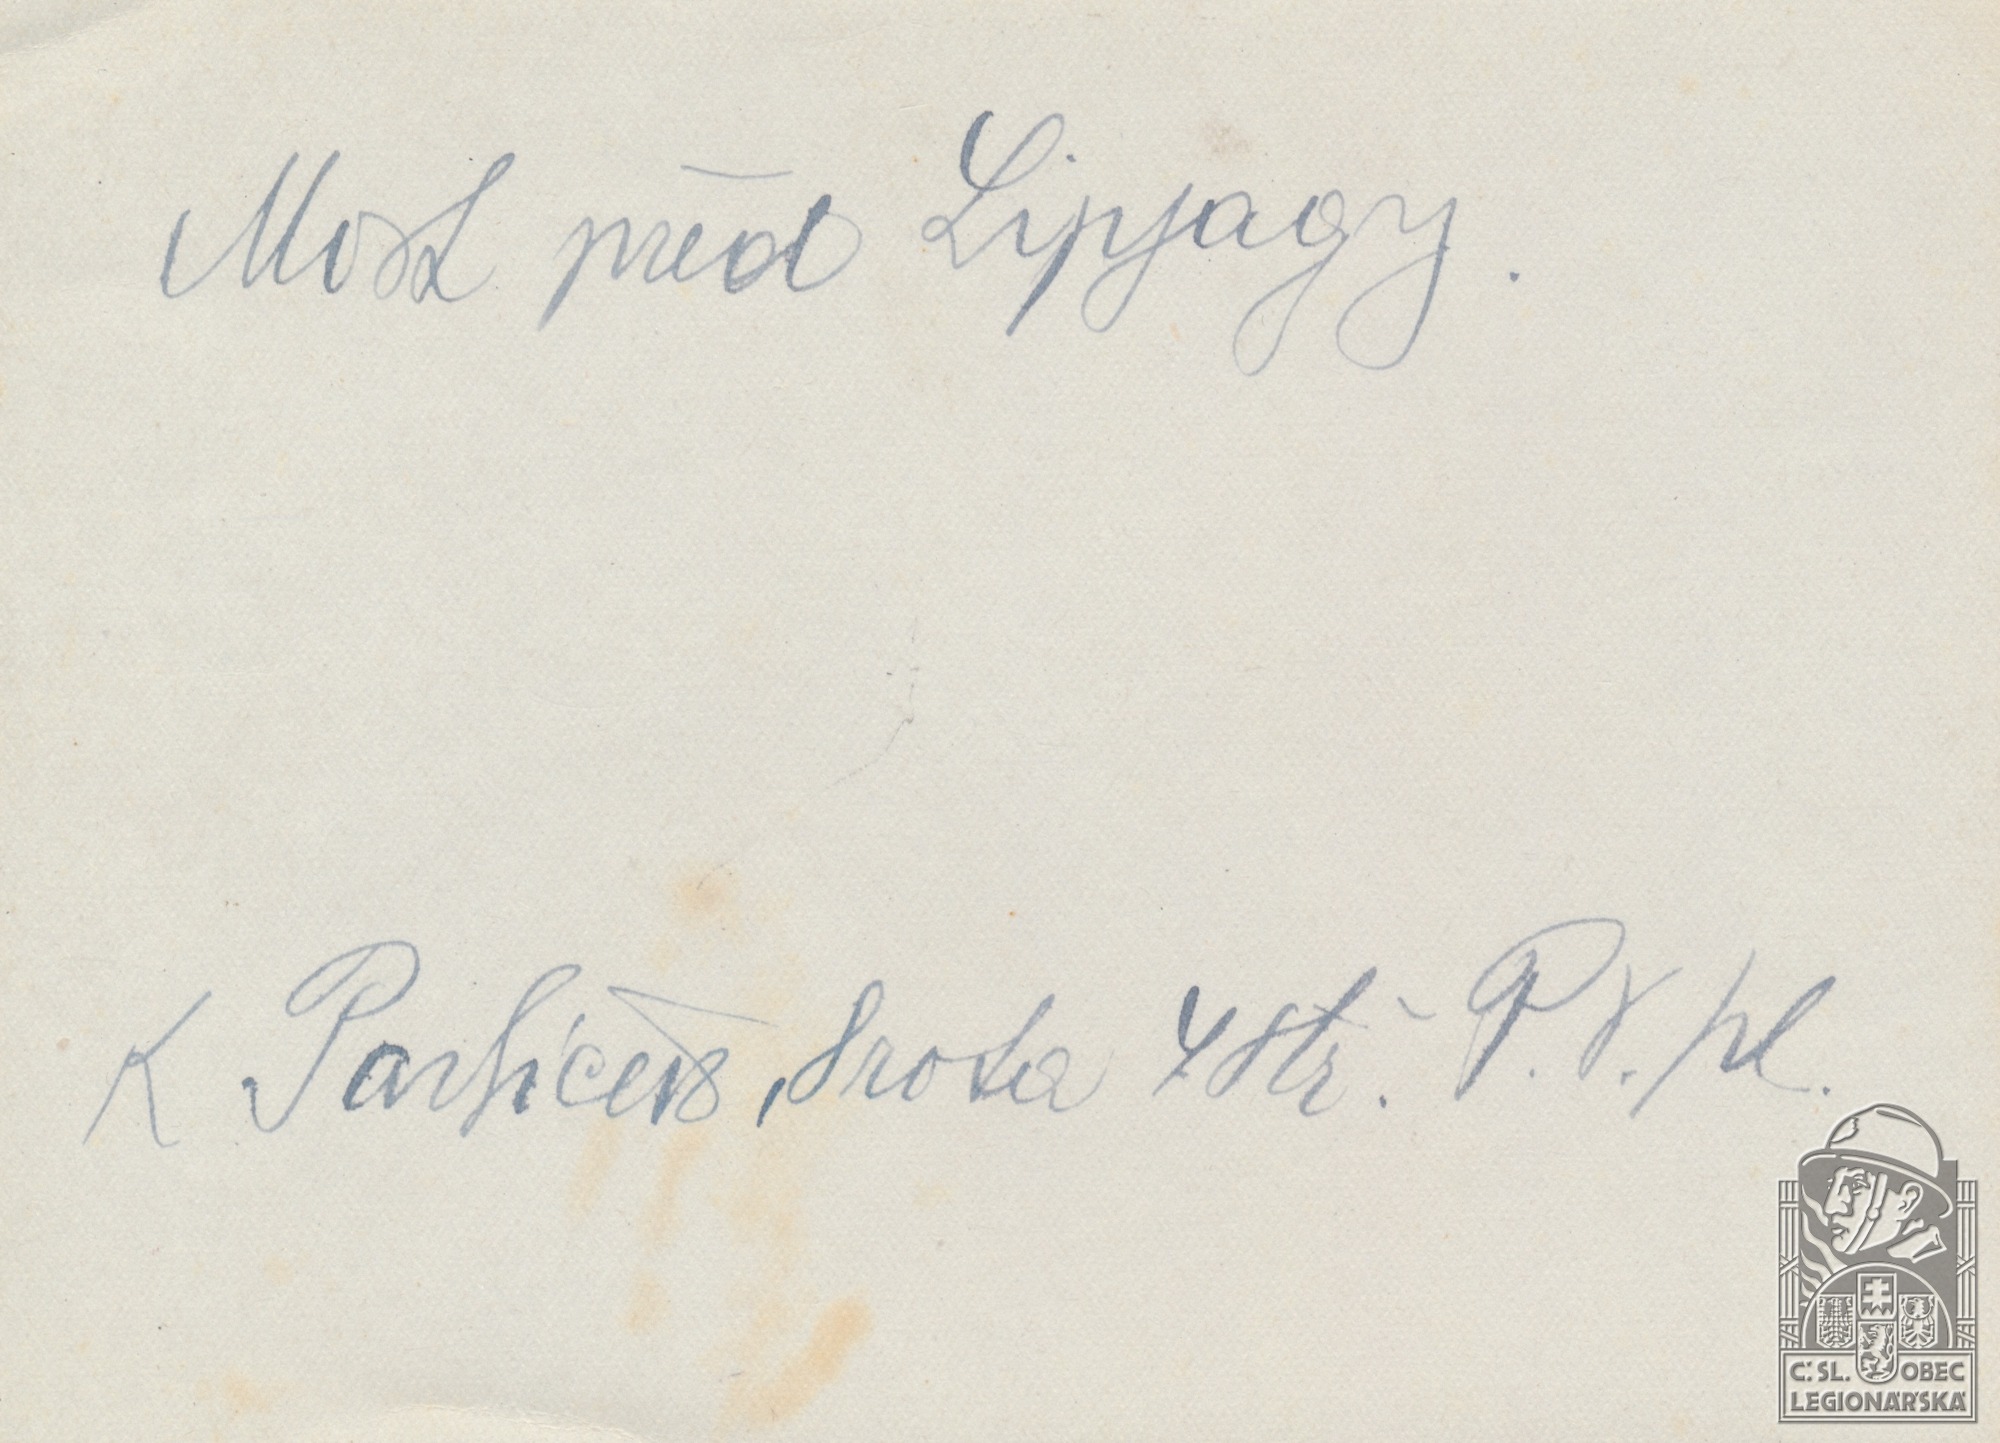 Most před Lipjagy.
K Pavlíček, 8 rota 4 stř. P. Y. pl.
Č. SL. OBEC
LEGIONÁŘSKÁ